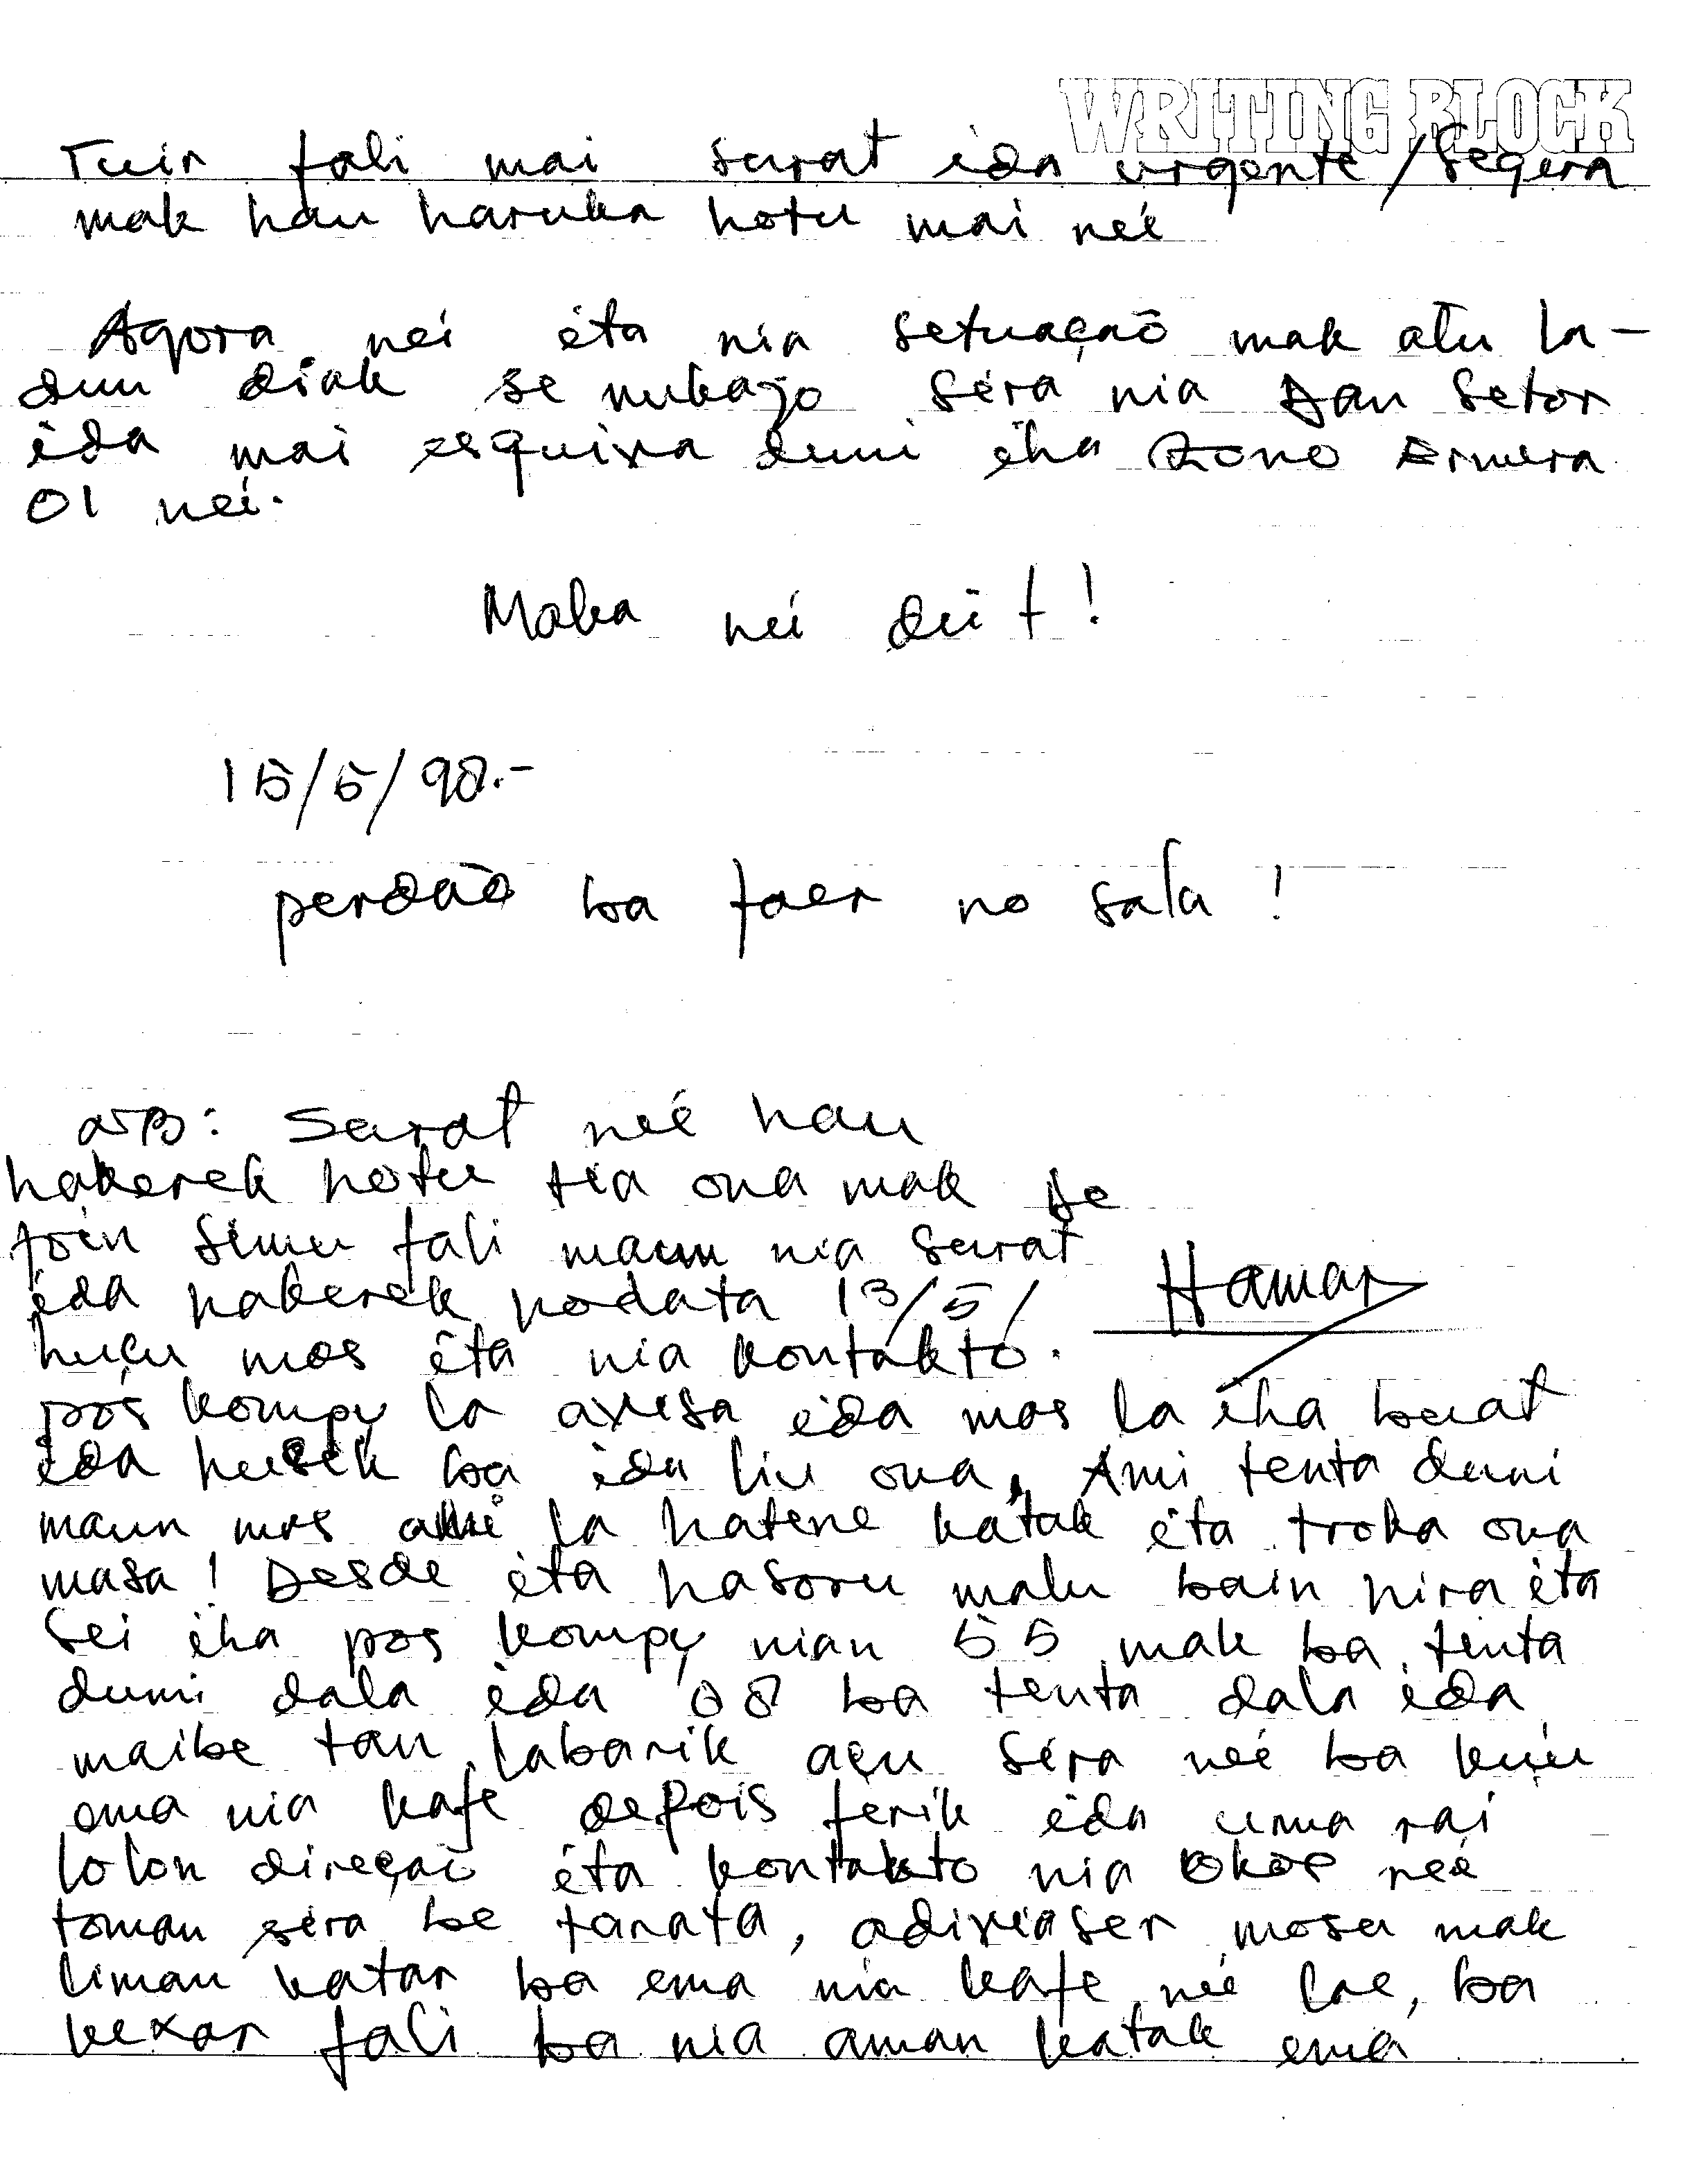 WRITING BLOCK
Tuir fali mai surat ida urgente/segera
mak hau haruka hotu mai neé
Agora neí éta nia setuaçaõ mak atu la-
dun diak se nukajo séra nia Dan Setor
éda mai esquixa dumi éha Zono Ermera
01 neí.
Maka neí deit!
15/5/98.-
perdaõ ba faer no sala!
NB: Surat neé hau
hakerek hotu tia ona mak be
foin simu fali maun nia surat
éda hakerek hodata 13/5/
huçu mos éta nia kontakto.
Hamar
pos kompy la axesa éda mos la éha buat
éda husik ba éda liu ona, Ami tenta dumi
maun mos ami la hatene katak éta troka ona
masa! Desde éta hasoru malu bain hira éta
sei éha pos kompy nian 55 mak ba tenta
dumi dala éda 08 ba tenta dala éda
maibe tan labarik açu séra neé ba kuu
ema nia kafe depois ferik éda uma rai
lolon direçaõ éta kontakto nia okos neé
toman séra be tanata, adixiaser mosu mak
liman katar ba ema nia kafe neé lae, ba
kexar fali ba nia aman katak ema